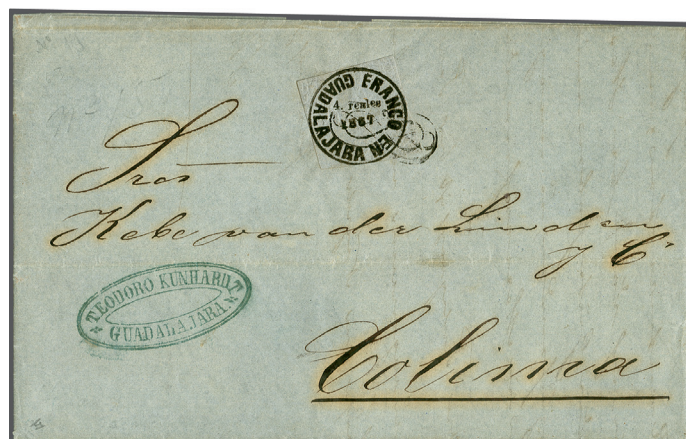 FRANCO EN GUADALAJARA
4. reales
1867
Sres
Kebe van der Linden
y Cª
TEODORO KUNHARDT
GUADALAJARA
Colima